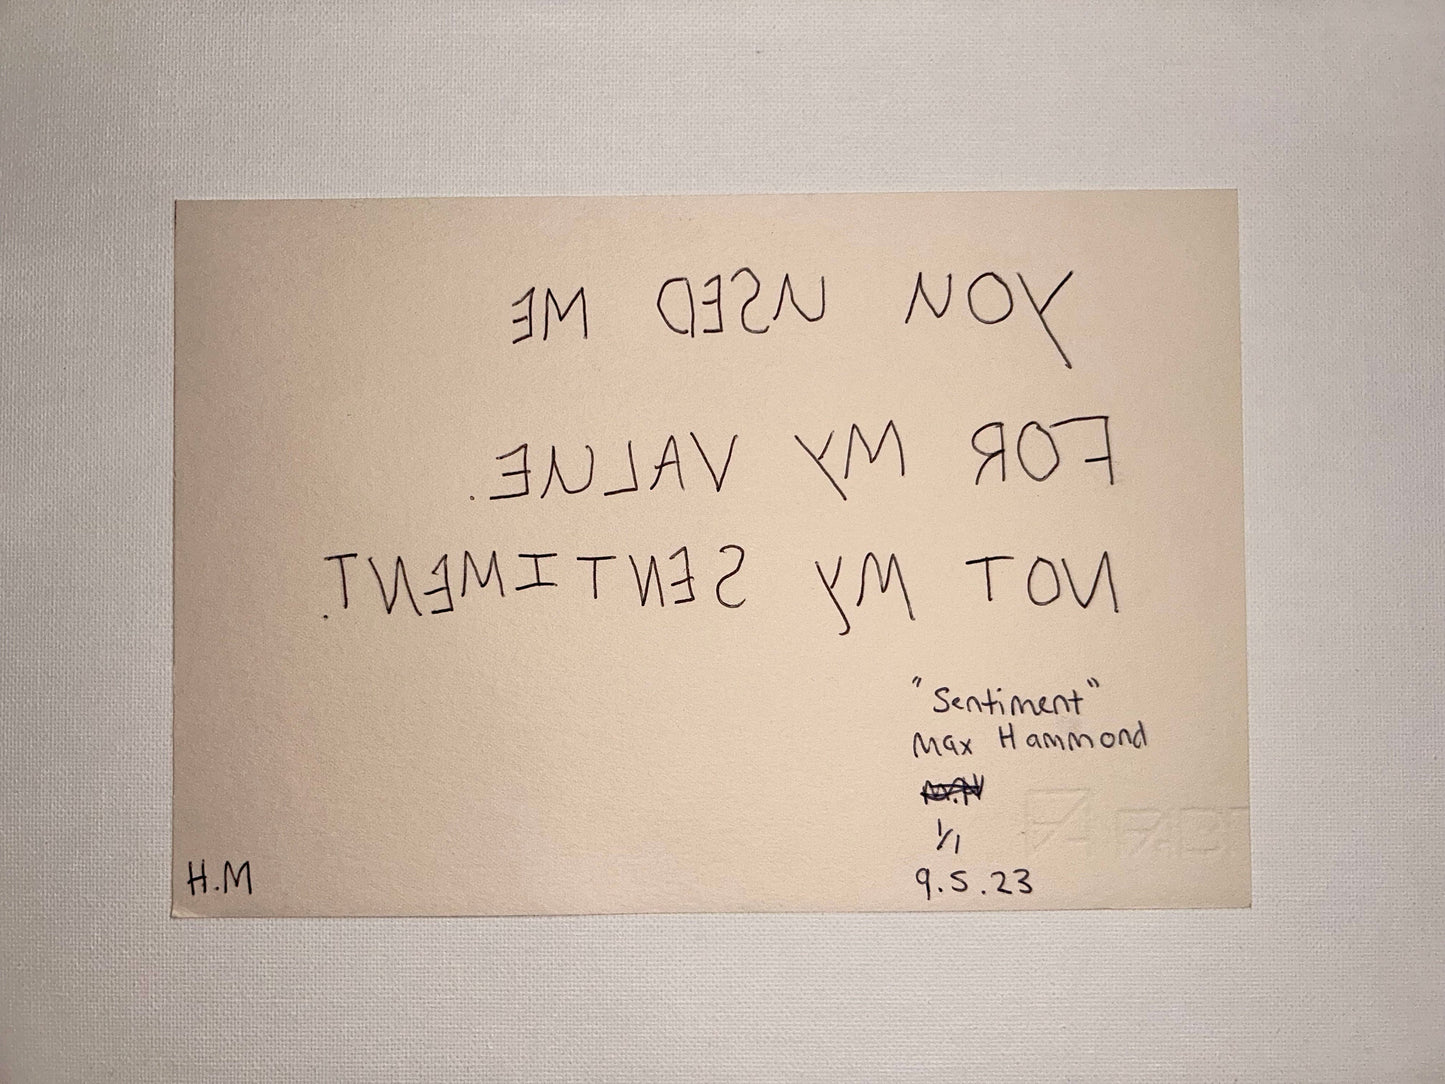 YOU USED ME
FOR MY VALUE.
NOT MY SENTIMENT.
"Sentiment"
Max Hammond
1/1
9.5.23
H.M